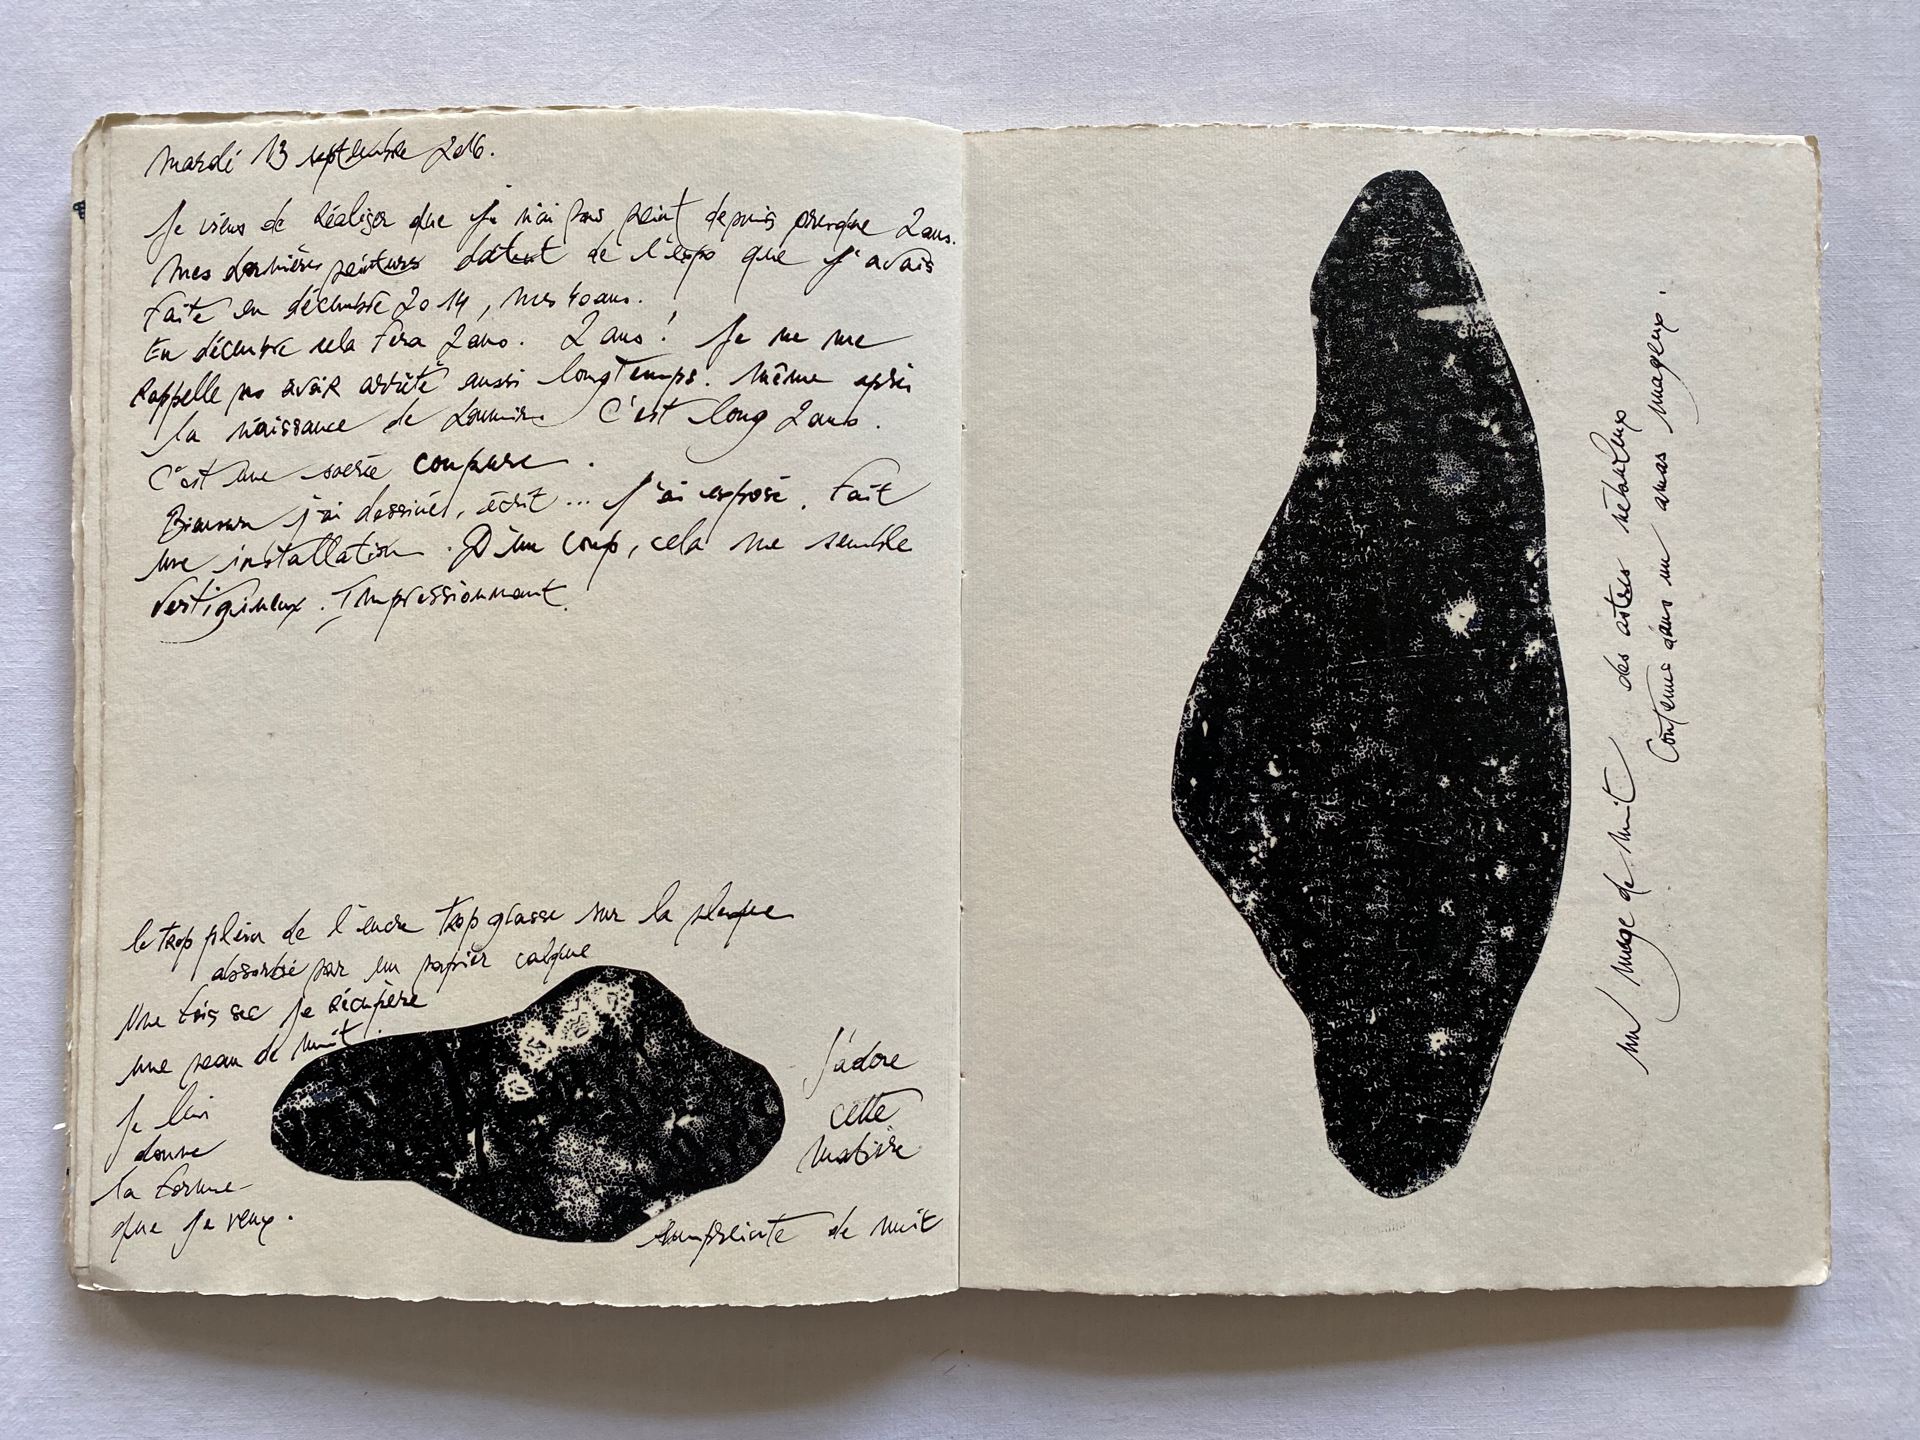 mardi 13 septembre 2016.
Je viens de réaliser que je n'ai pas peint depuis presque 2 ans.
Mes dernières peintures datent de l'expo que j'avais
faite en décembre 2014, mes 40 ans.
En décembre cela fera 2 ans. 2 ans ! Je ne me
rappelle pas avoir arrêté aussi longtemps. Même après
la naissance de C'est long 2 ans.
C'est une sacrée coupure.
j'ai dessiné, écrit... j'ai exposé. Fait
une installation. D'un coup, cela me semble
vertigineux. Impressionnant.
le trop plein de l'encre trop grasse sur la plaque
absorbé par un papier calque
Une fois sec je récupère
une peau de nuit.
Je lui
donne
la forme
que je veux.
J'adore
cette
matière
de nuit
un nuage de nuit des astres nébuleux
Contenus dans un amas nuageux.